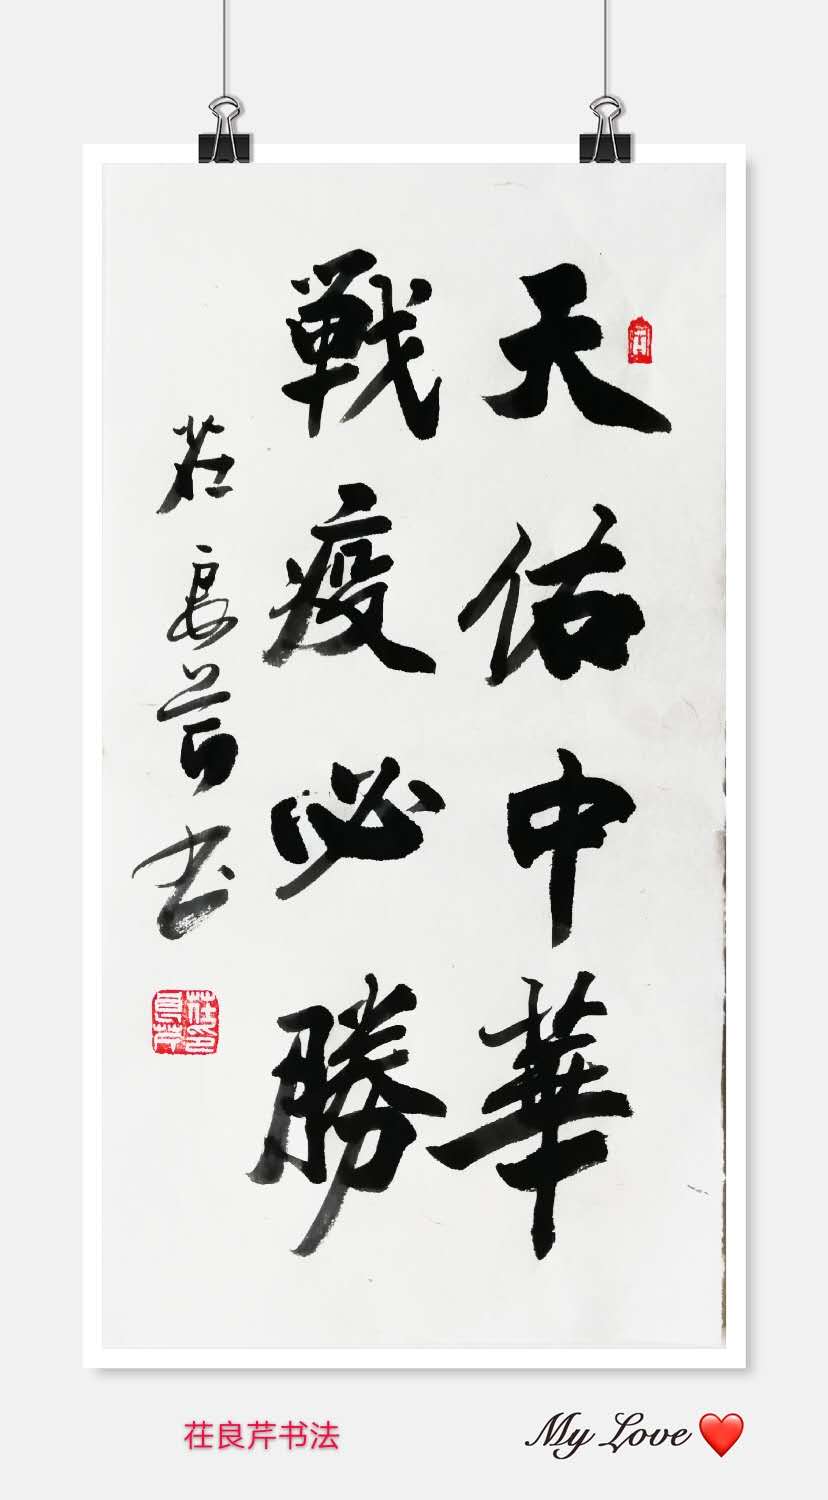 天佑中華
戦疫必勝
茌良芹书
茌良芹书法
My Love